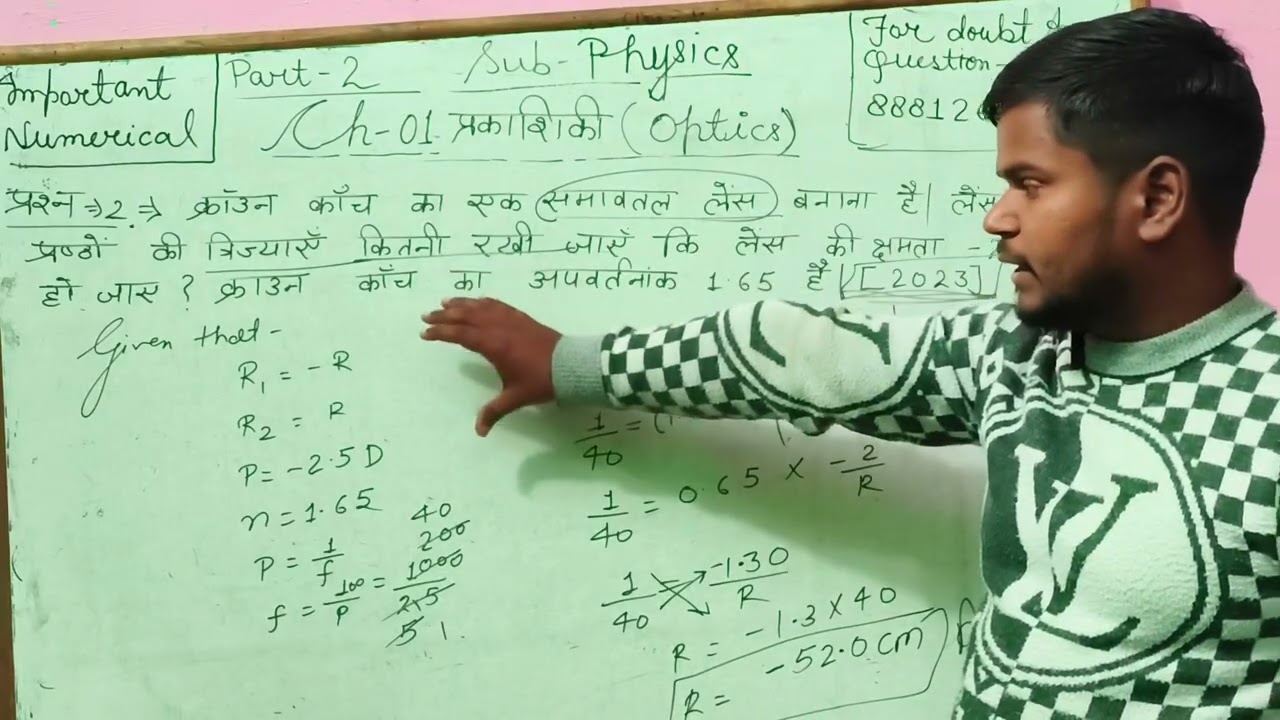 Important
Numerical
Part-2
Sub-Physics
Ch-01 प्रकाशिकी (Optics)
For doubt &
Question-
88812
प्रश्न ⇒ 2. ⇒ क्रॉउन काँच का एक समावतल लेंस बनाना है| लेंस
प्रष्ठों की त्रिज्याएँ कितनी रखी जाएँ कि लेंस की क्षमता -
हो जाए ? क्राउन काँच का अपवर्तनांक 1.65 है| [2023]
Given that-
R₁ = - R
R₂ = R
P = - 2.5 D
n = 1.65
P = 1/f
f = 100/P = 1000/25
200
40
5 1
1/40 = (
1/40 = 0.65 × - 2/R
1/40 = -1.30/R
R = -1.3 × 40
R = -52.0 cm